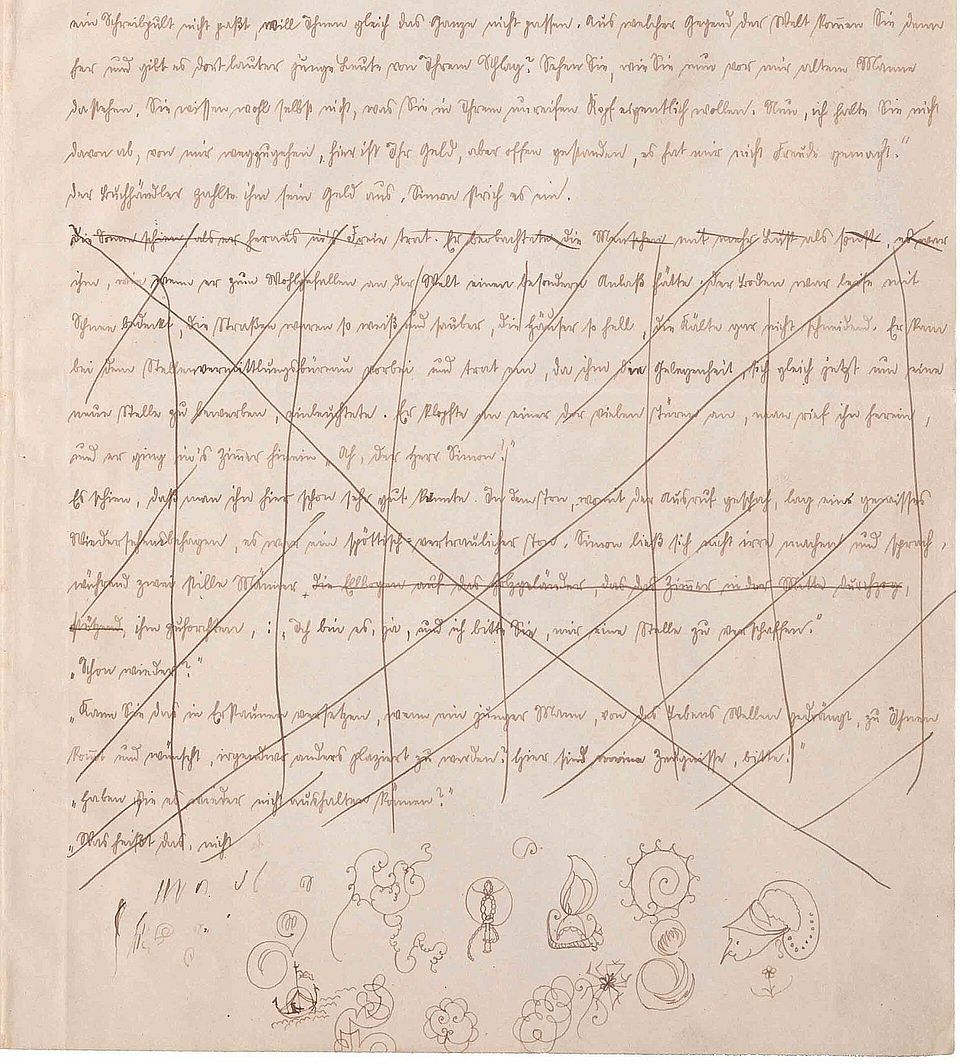 ein Schreibpult nicht paßt, will Ihnen gleich das Ganze nicht passen. Aus welcher Gegend der Welt kommen Sie denn
her und gibt es dort lauter junge Leute von Ihrem Schlag? Sehen Sie, wie Sie nun vor mir altem Manne
dastehen. Sie wissen wohl selbst nicht, was Sie in Ihrem unreifen Kopf eigentlich wollen. Nun, ich halte Sie nicht
davon ab, von mir wegzugehen, hier ist Ihr Geld, aber offen gestanden, es hat mir nicht Freude gemacht."
Der Buchhändler zahlte ihm sein Geld aus, Simon strich es ein.
Die Sonne schien, als er heraus ins Freie trat. Er beobachtete die Menschen mit mehr Lust als sonst, es war
ihm, wie wenn er zum Wohlgefallen an der Welt einen besondern Anlaß hätte, der Boden war leise mit
Schnee bedeckt, die Straßen waren so weiß und sauber, die Häuser so hell, die Kälte gar nicht schneidend. Er kam
bei dem Stellenvermittlungsbüreau vorbei und trat ein, da ihm die Gelegenheit, sich gleich jetzt um eine
neue Stelle zu bewerben, einleuchtete. Er klopfte an einer der vielen Türen an, man rief ihn herein,
und er ging in's Zimmer hinein „Ah, der Herr Simon!"
Es schien, daß man ihn hier schon sehr gut kannte. In dem Ton, womit der Ausruf geschah, lag eine gewisses
Wiedersehensbehagen, es war ein spöttisch-vertraulicher Ton. Simon ließ sich nicht irre machen und sprach,
während zwei stille Männer, die Ellbogen auf das Holzgeländer, das das Zimmer in der Mitte durchzog,
stützend, ihm zuhorchten, : „Ich bin es, ja, und ich bitte Sie, mir eine Stelle zu verschaffen."
„Schon wieder?"
„Kann Sie das in Erstaunen versetzen, wenn ein junger Mann, von des Lebens Wellen gedrängt, zu Ihnen
kommt und wünscht, irgendwo anders plaziert zu werden? Hier sind meine Zeugnisse, bitte!"
„Haben Sie es wieder nicht aushalten können?"
„Was heißt das, nicht